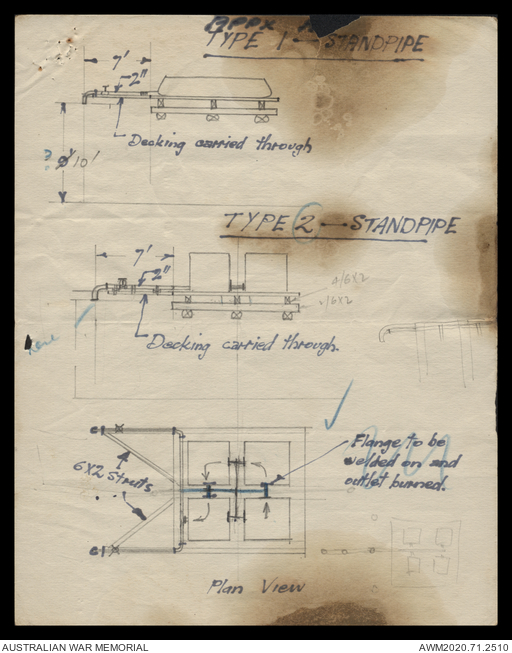 APPX A
TYPE 1 — STANDPIPE
7'
2"
Decking carried through
? 10'
TYPE 2 — STANDPIPE
7'
2"
4/6X2
2/6X2
Decking carried through.
Flange to be
welded on and
outlet burned.
6X2 Struts
Plan View
AUSTRALIAN WAR MEMORIAL
AWM2020.71.2510